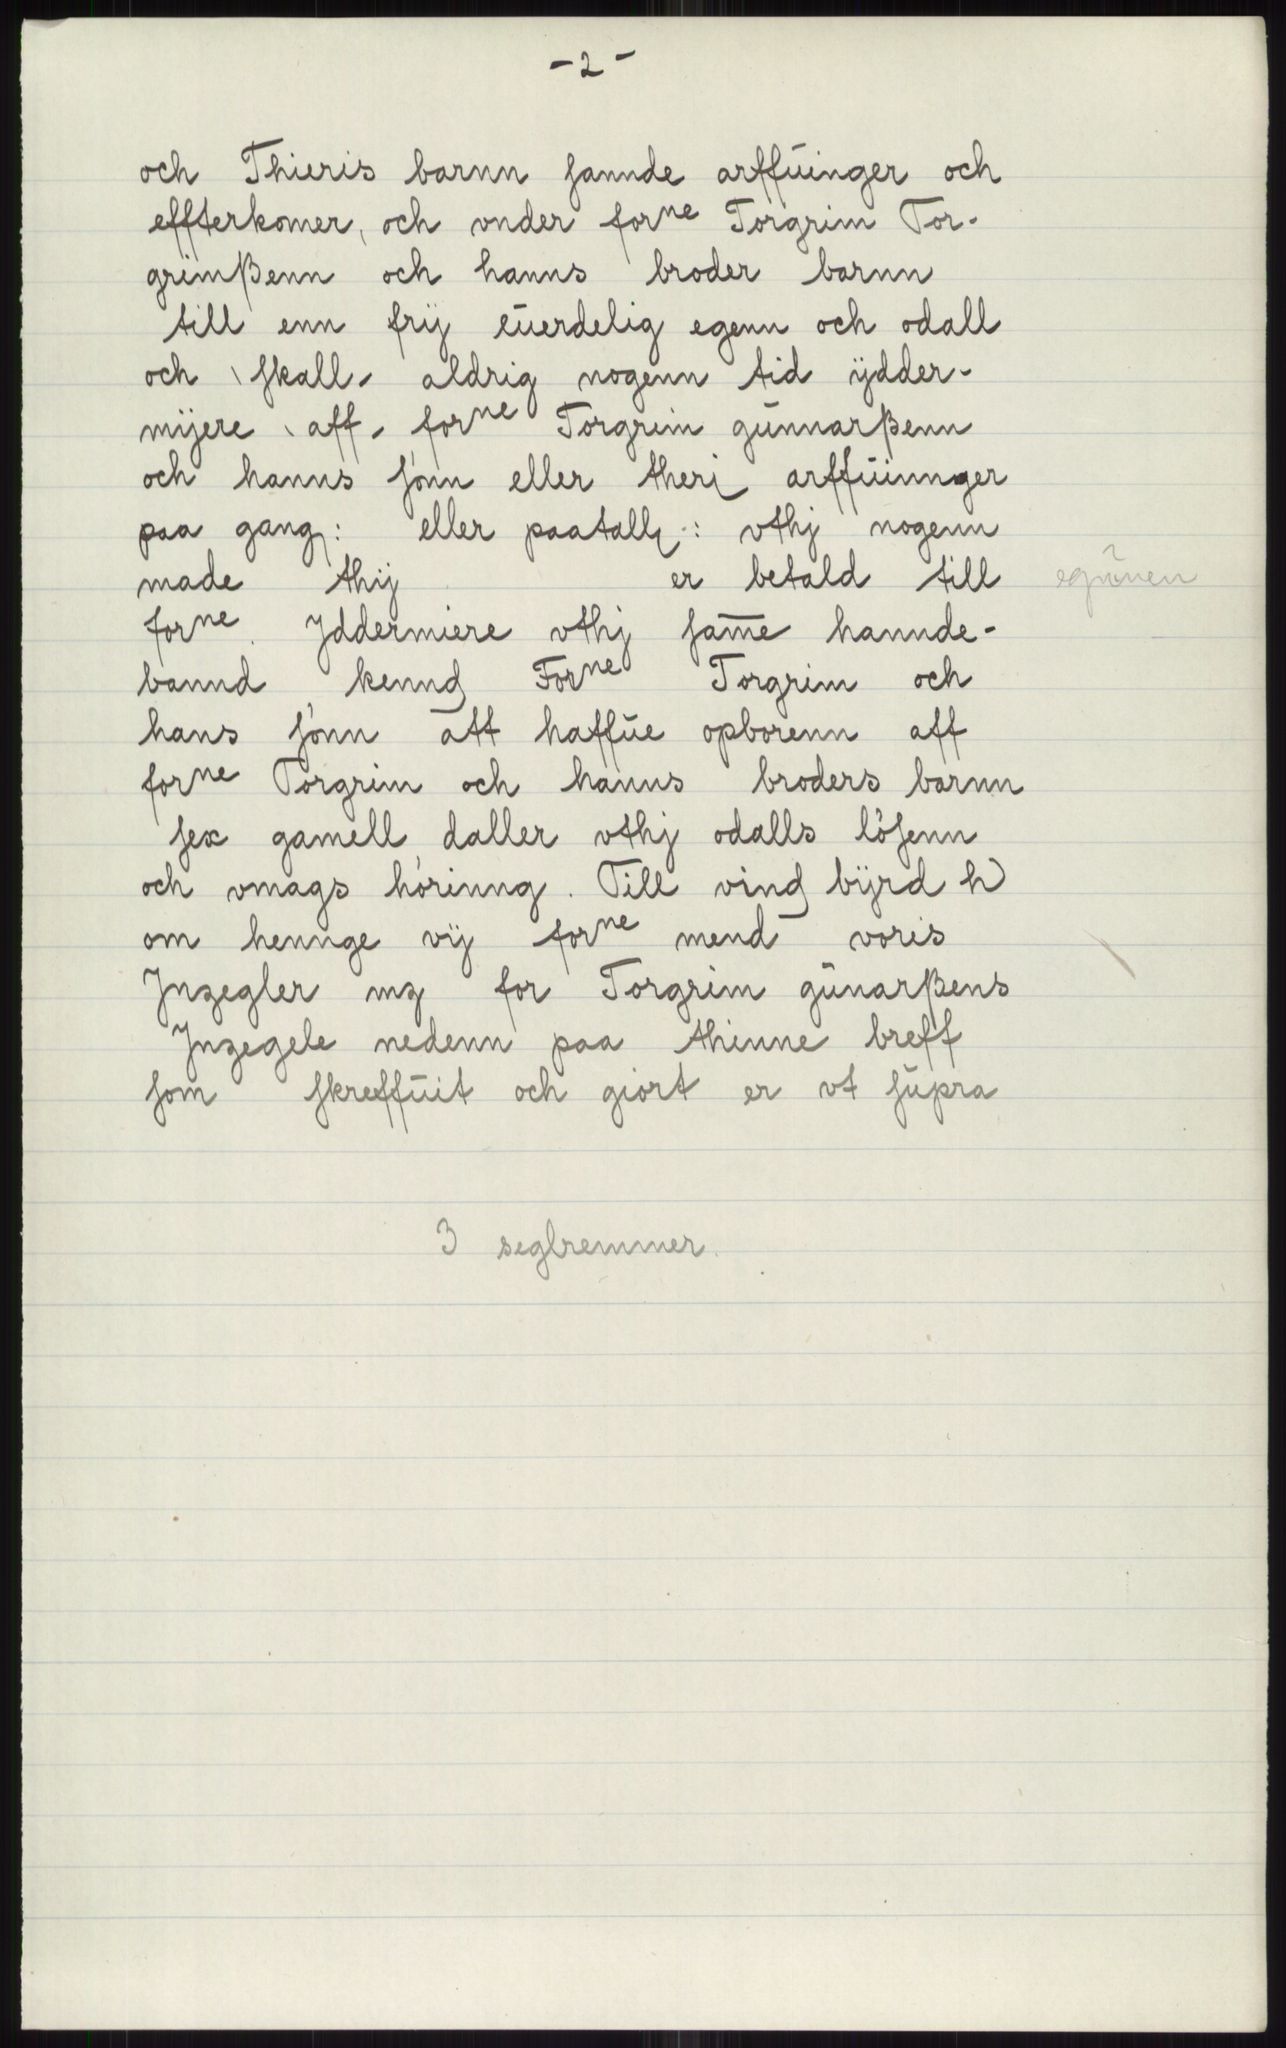 - 2 -
och Thieris barnn sannde arffūinger och
effterkomer, och vnder forne Torgrim Tor-
grimßenn och hanns broder barnn
till enn frij eūerdelig egenn och odall
och skall aldrig nogenn tid ÿdder-
mijere aff forne Torgrim gūnnarßenn
och hanns sónn eller theri arffūinnger
paa gang: eller paatall: vthj nogenn
made thij er betald till egūnen
forne. Jddermiere vthj sam̅e hannde-
bannd kennd Forne Torgrim och
hans sónn att haffūe opborenn aff
forne Torgrim och hanns broders barnn
sex gamell daller vthj odalls lósenn
och vmags hórinng. Till vind bÿrd h
om hennge vij forne mend voris
Jnzegler mz for Torgrim gūnarßens
Jnzegele nedenn paa thenne breff
som skreffūit och giort er vt sūpra
3 seglremmer.